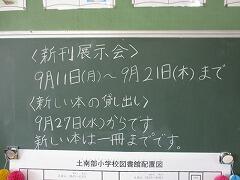 〈新刊展示会〉
9月11日(月)~9月21日(木)まで
〈新しい本の貸し出し〉
9月27日(水)からです。
新しい本は一冊までです。
土南部小学校図書館配置図